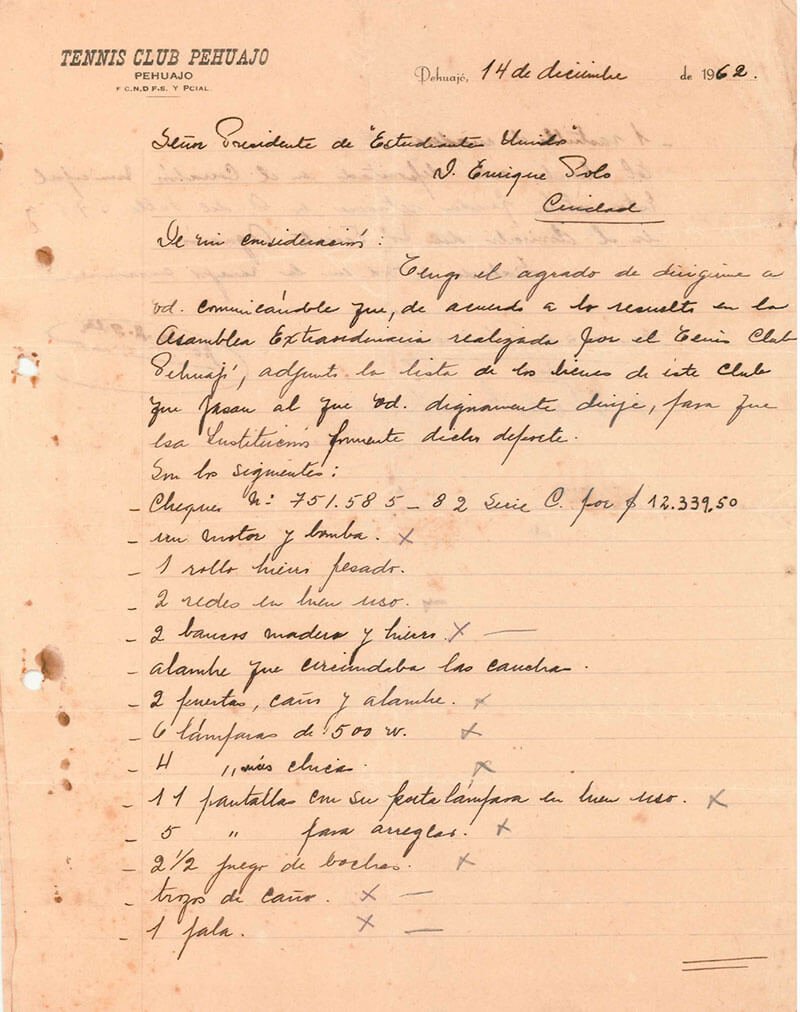 TENNIS CLUB PEHUAJO
PEHUAJO
F C.N.D F-S. Y PCIAL.
Pehuajó, 14 de diciembre de 1962.
Señor Presidente de "Estudiantes Unidos"
D. Enrique Polo
Ciudad
De mi consideración:
Tengo el agrado de dirigirme a
Vd. comunicándole que, de acuerdo a lo resuelto en la
Asamblea Extraordinaria realizada por el Tenis Club
Pehuajó, adjunto la lista de los bienes de este Club
que pasan al que Vd. dignamente dirije, para que
esa Institución fomente dicho deporte.
Son los siguientes:
- Cheques Nº 751.585 - 82 Serie C. por $ 12.339,50
- un motor y bomba. x
- 1 rollo hierro pesado.
- 2 redes en buen uso.
- 2 bancos madera y hierro. x —
- alambre que circundaba las canchas.
- 2 puertas, caño y alambre. x
- 6 lámparas de 500 w. x
- 4 " más chicas. x
- 11 pantallas con su portalámpara en buen uso. x
- 5 " para arreglar. x
- 2 1/2 juego de bochas. x
- trozos de caño. x —
- 1 pala. x —